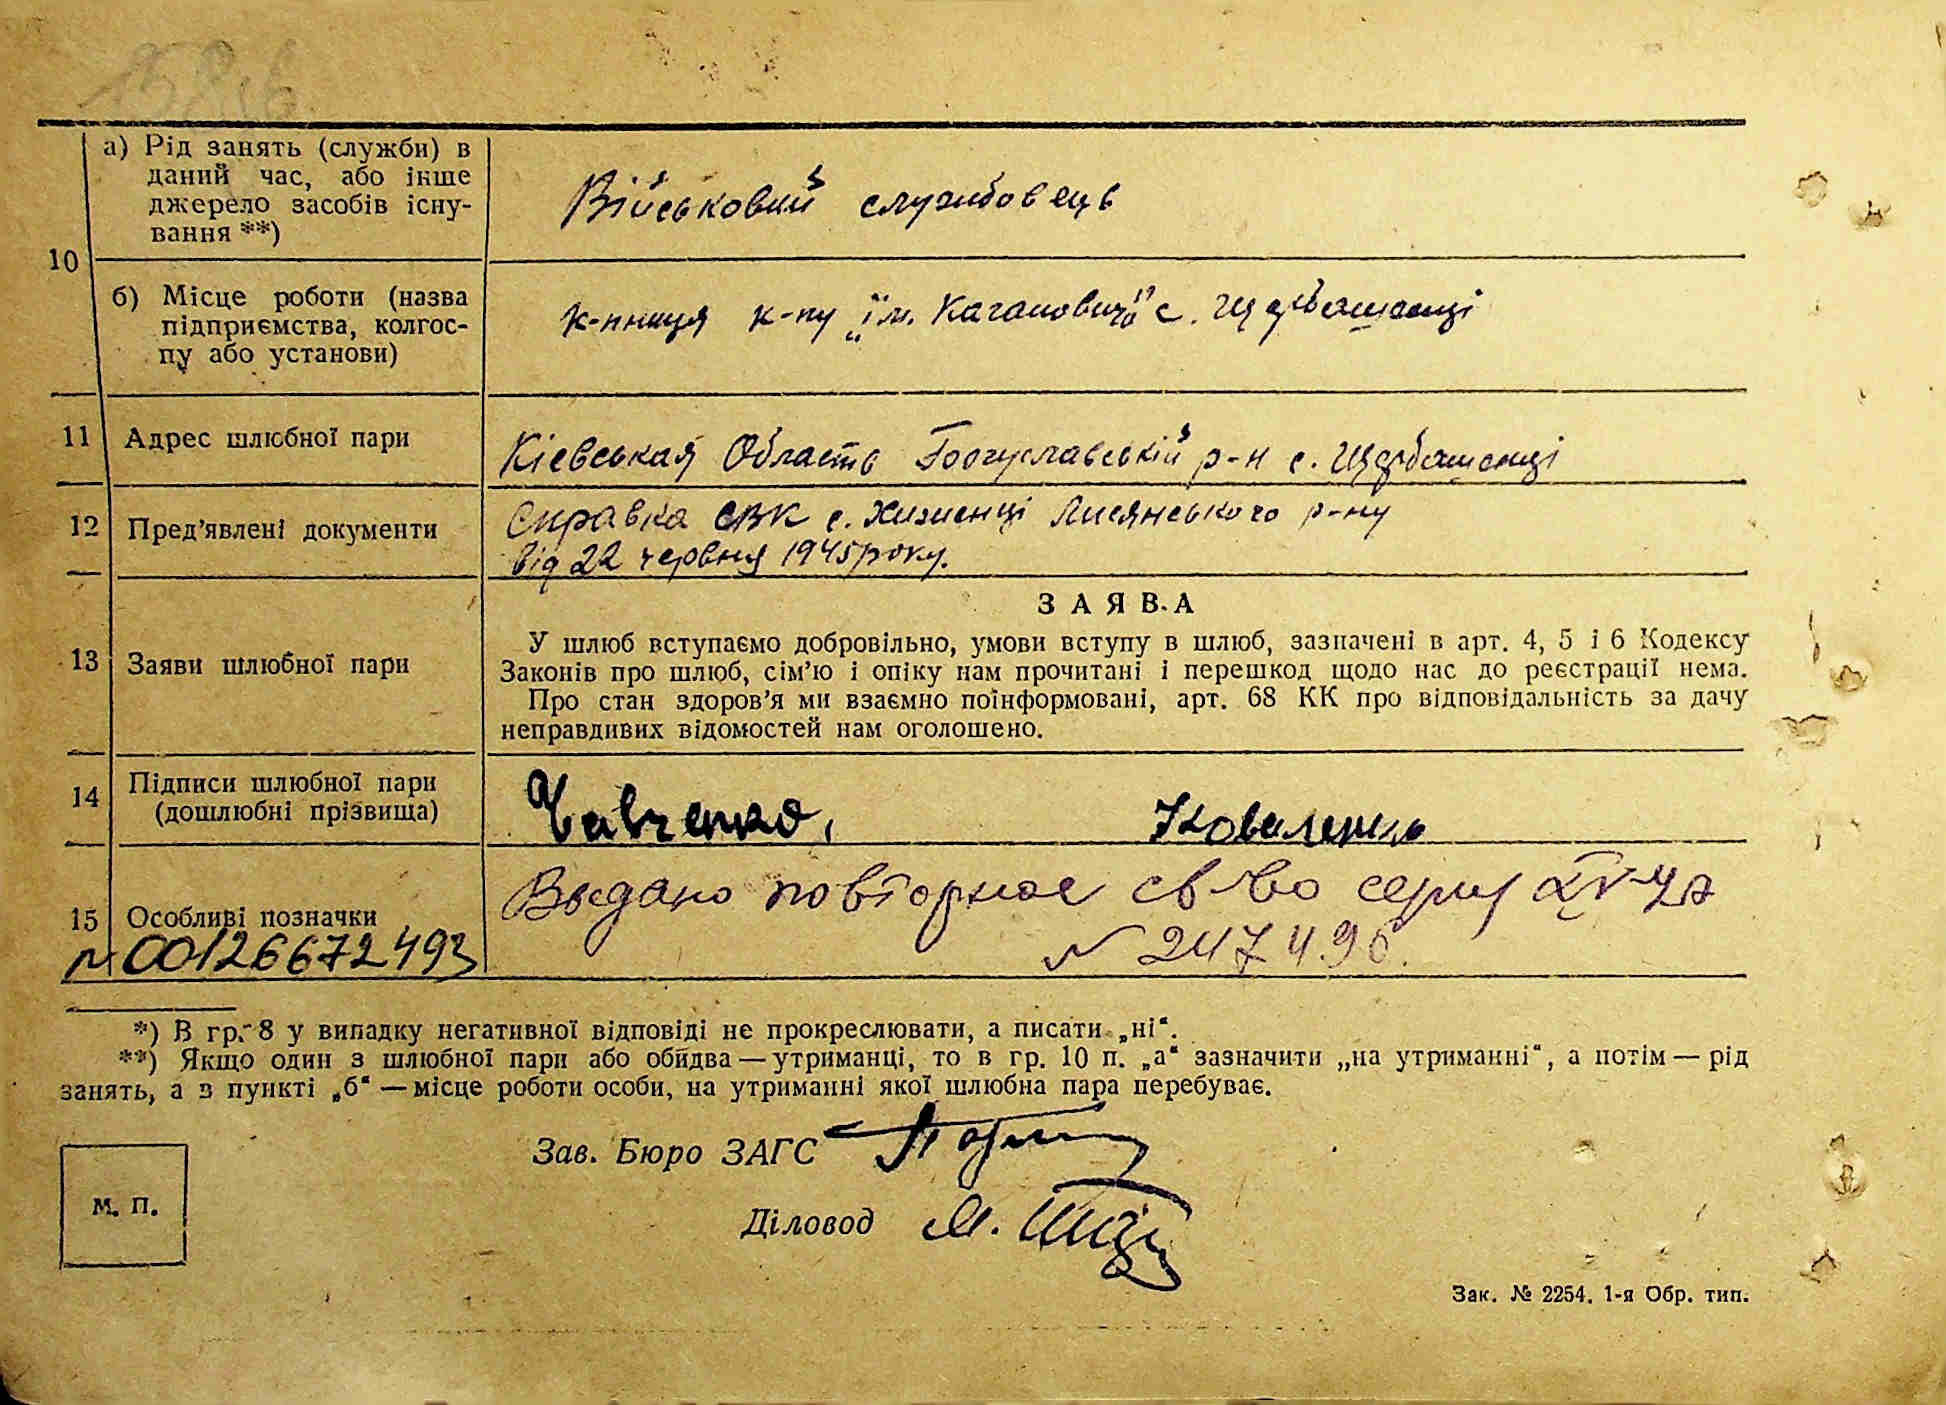 10
а) Рід занять (служби) в
даний час, або інше
джерело засобів існу-
вання **)
Військовий службовець
б) Місце роботи (назва
підприємства, колгос-
пу або установи)
к-пниця к-пу „їм. Кагановича" с. Щербашенці
11 Адрес шлюбної пари
Кієвськая Область Богуславській р-н с. Щербашенці
12 Пред’явлені документи
Справка СВК с. Хиженці Лисянського р-ну
від 22 червня 1945 року.
13 Заяви шлюбної пари
ЗАЯВА
У шлюб вступаємо добровільно, умови вступу в шлюб, зазначені в арт. 4, 5 і 6 Кодексу
Законів про шлюб, сім’ю і опіку нам прочитані і перешкод щодо нас до реєстрації нема.
Про стан здоров’я ми взаємно поінформовані, арт. 68 КК про відповідальність за дачу
неправдивих відомостей нам оголошено.
14 Підписи шлюбної пари
(дошлюбні прізвища)
Коваленко
15 Особливі позначки
№ 00126672493
Выдано повторное св-во серия
№ 247490.
*) В гр. 8 у випадку негативної відповіді не прокреслювати, а писати „ні“.
**) Якщо один з шлюбної пари або обидва — утриманці, то в гр. 10 п. „а“ зазначити „на утриманні“, а потім — рід
занять, а в пункті „б“ — місце роботи особи, на утриманні якої шлюбна пара перебуває.
Зав. Бюро ЗАГС
Діловод
м. п.
Зак. № 2254. 1-я Обр. тип.